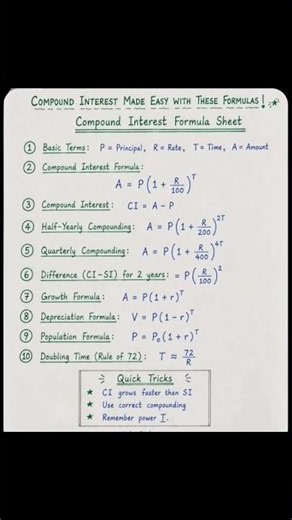 COMPOUND INTEREST MADE EASY WITH THESE FORMULAS!
Compound Interest Formula Sheet
① Basic Terms: P = Principal, R = Rate, T = Time, A = Amount
② Compound Interest Formula:
A = P(1 + R/100)^T
③ Compound Interest: CI = A - P
④ Half-Yearly Compounding: A = P(1 + R/200)^2T
⑤ Quarterly Compounding: A = P(1 + R/400)^4T
⑥ Difference (CI-SI) for 2 years: = P(R/100)^2
⑦ Growth Formula: A = P(1 + r)^T
⑧ Depreciation Formula: V = P(1 - r)^T
⑨ Population Formula: P = P₀(1 + r)^T
⑩ Doubling Time (Rule of 72): T ≈ 72/R
Quick Tricks
★ CI grows faster than SI
★ Use correct compounding
★ Remember power T.